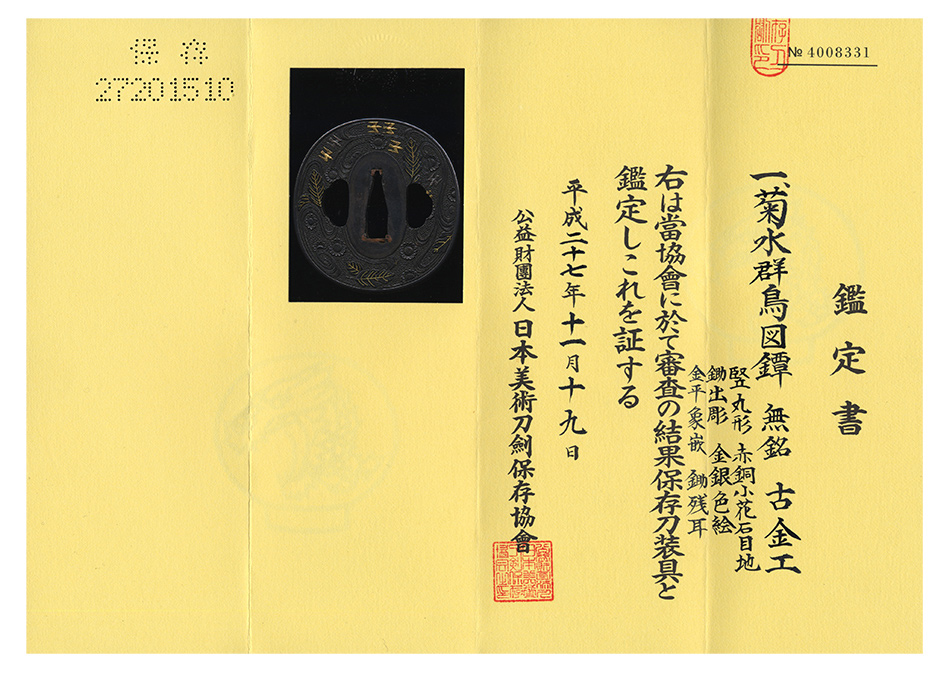 № 4008331
鑑定書
一、菊水群鳥図鐔 無銘 古金工
竪丸形 赤銅小花石目地
鋤出彫 金銀色絵
金平象嵌 鋤残耳
右は當協會に於て審査の結果保存刀装具と
鑑定しこれを証する
平成二十七年十一月十九日
公益財團法人 日本美術刀劍保存協會
保存
27201510